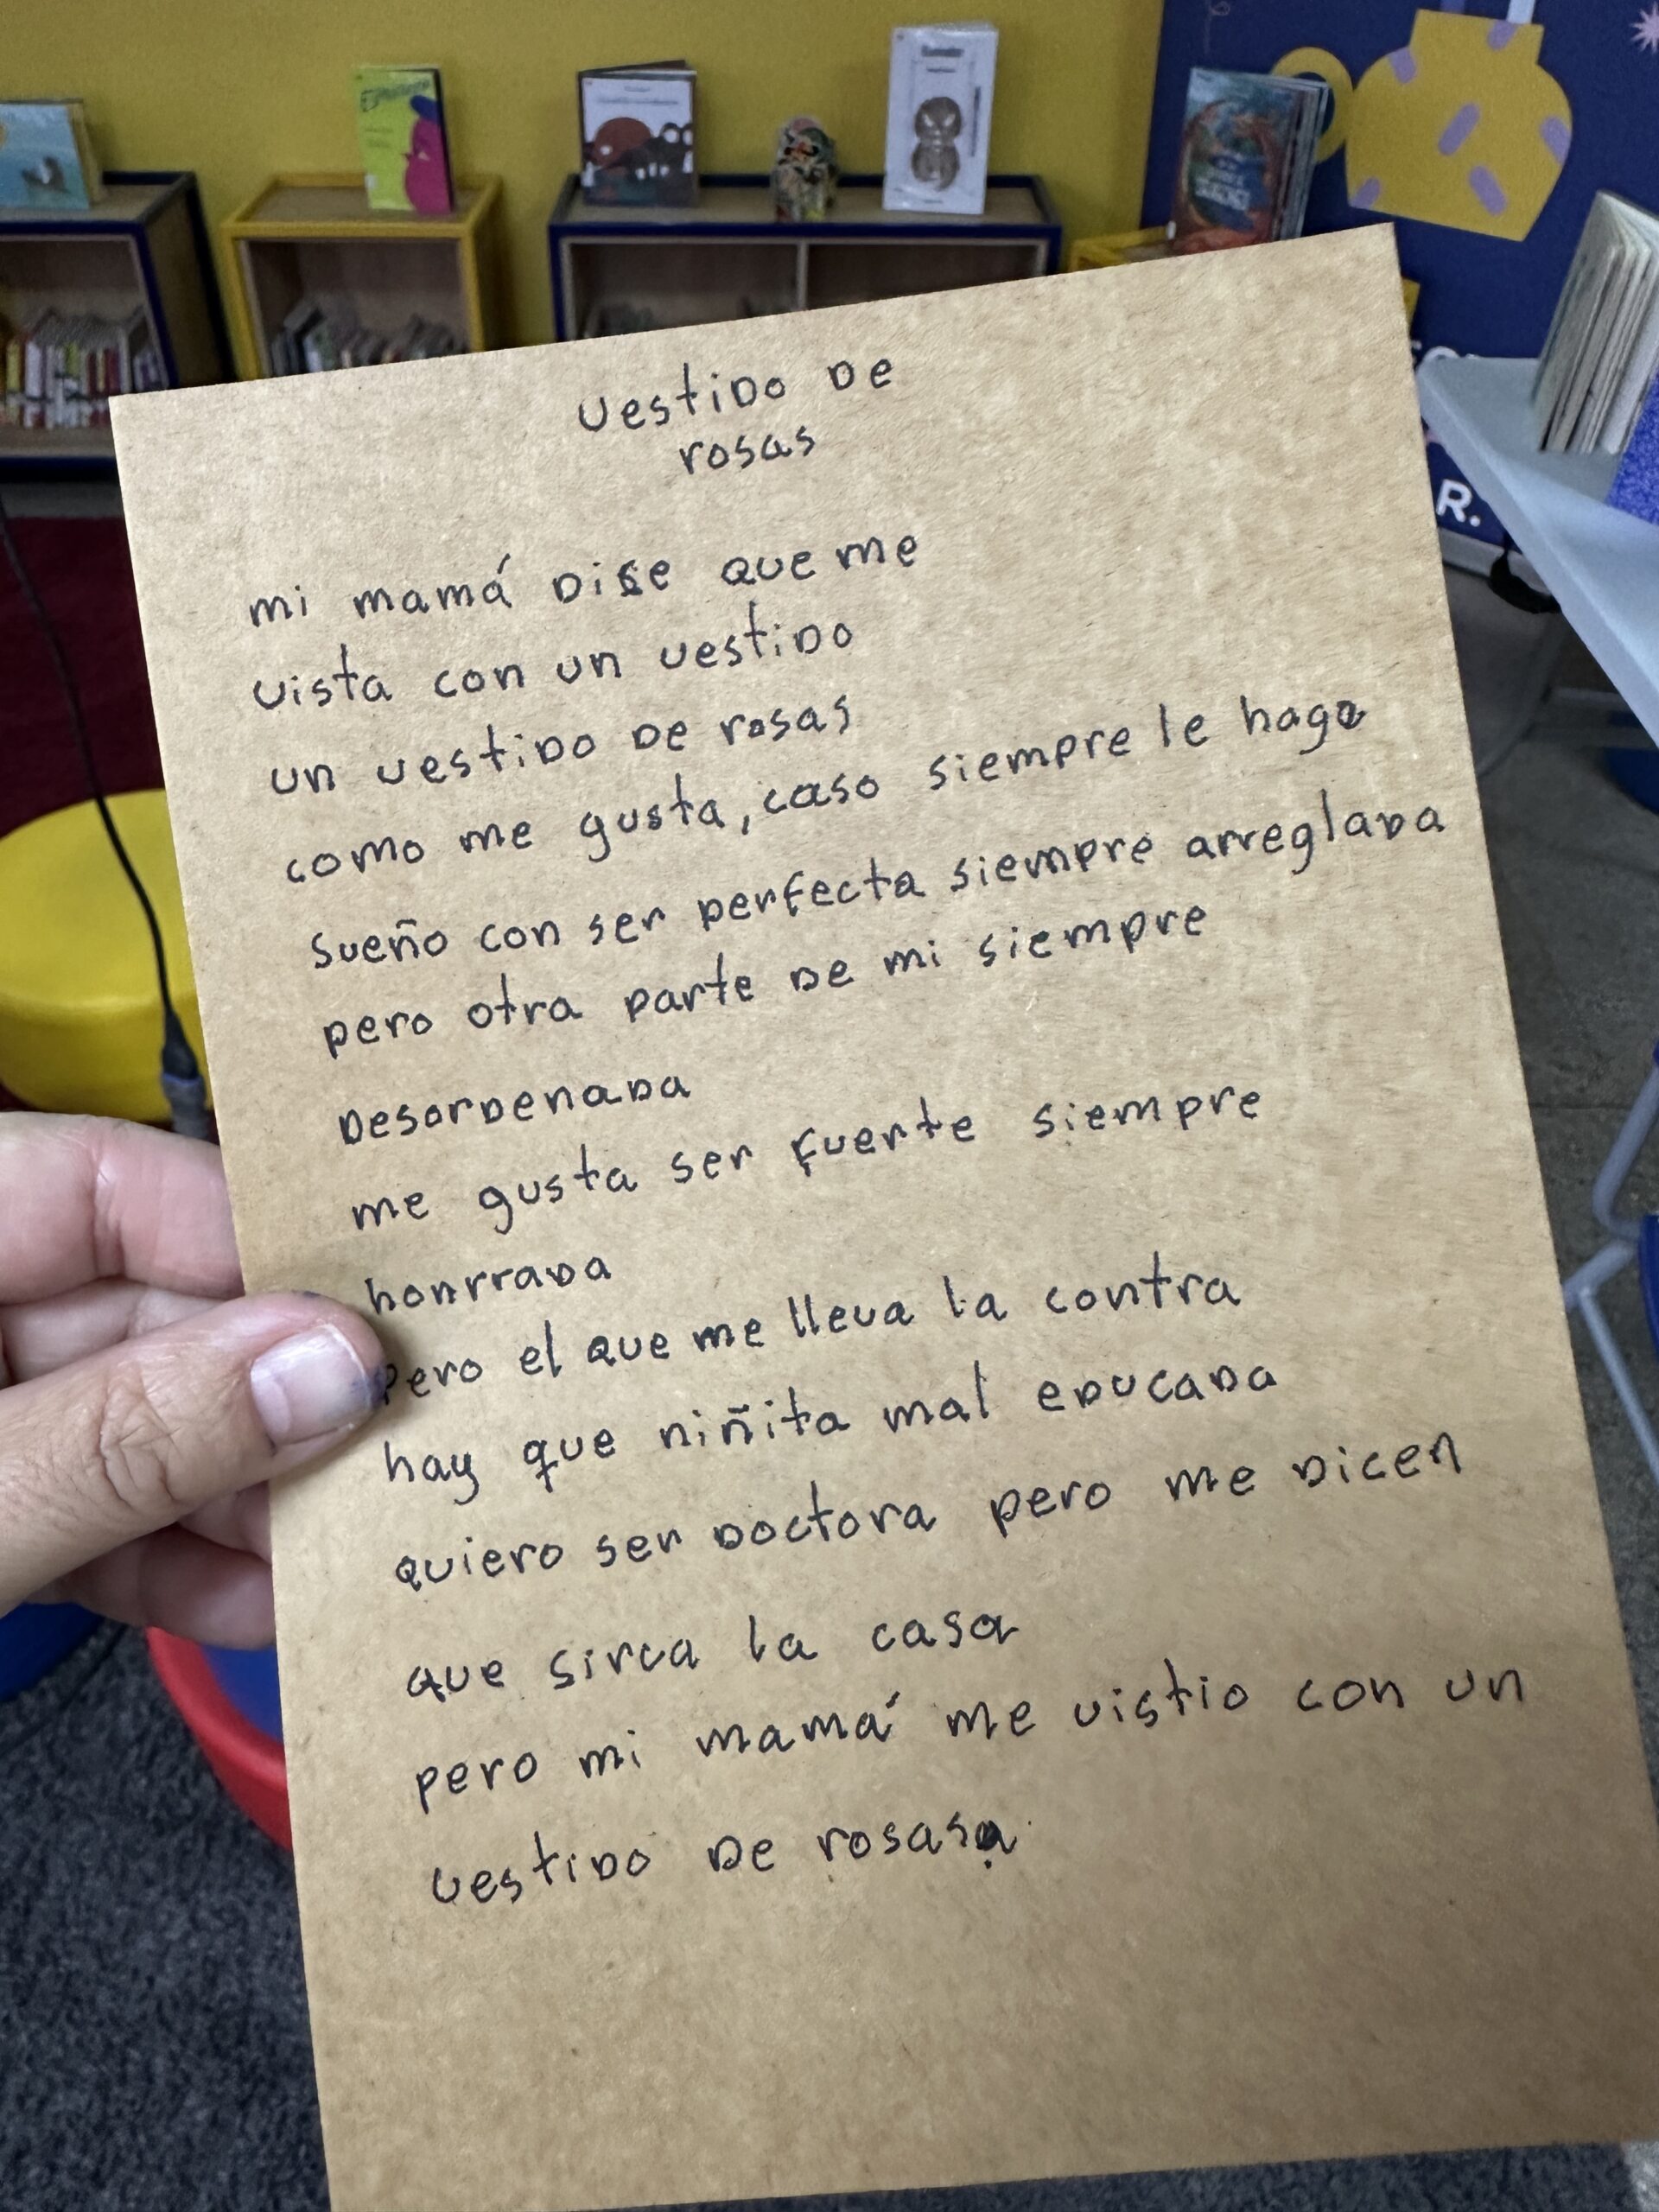 Vestido de
rosas
mi mamá dice que me
vista con un vestido
un vestido de rosas
como me gusta, caso siempre le hago
sueño con ser perfecta siempre arreglada
pero otra parte de mi siempre
desordenada
me gusta ser fuerte siempre
honrrada
pero el que me lleva la contra
hay que niñita mal educada
quiero ser doctora pero me dicen
que sirva la casa
pero mi mamá me vistio con un
vestido de rosas
R.